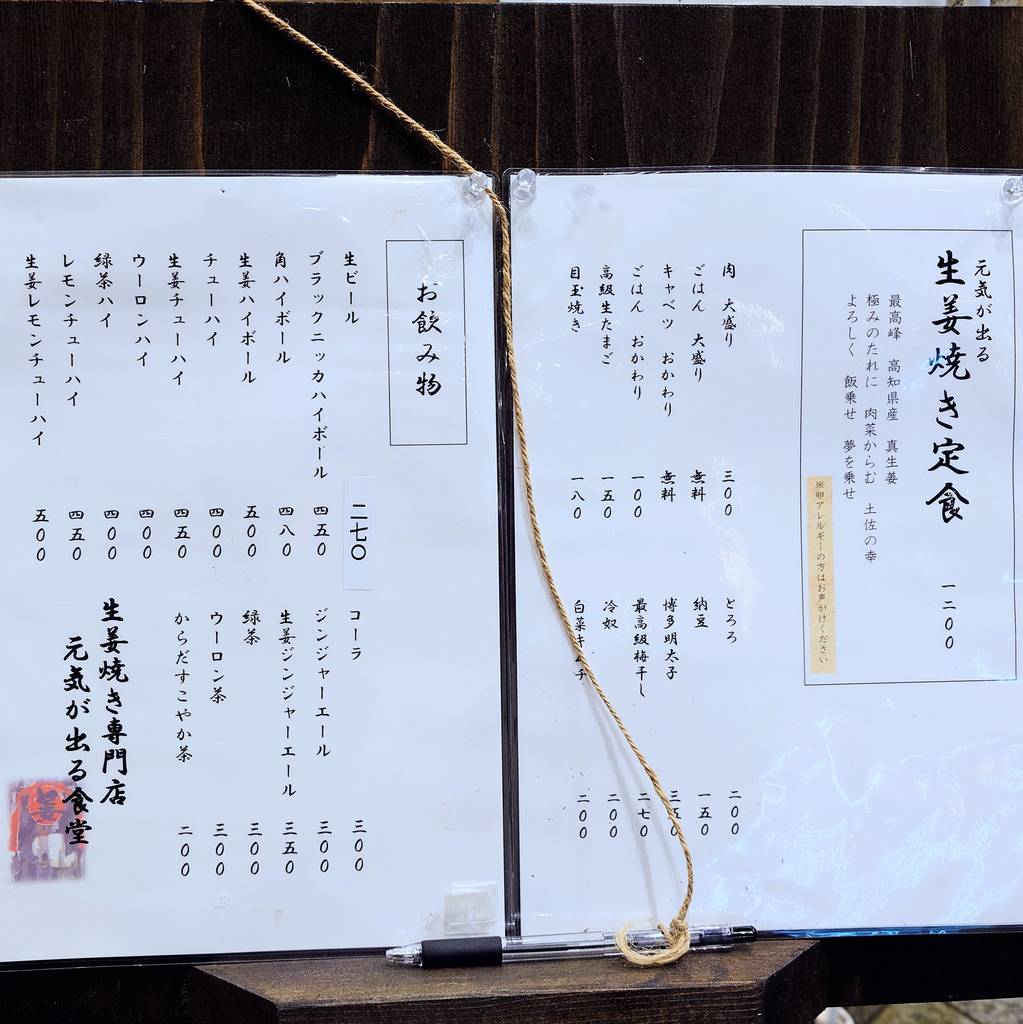 元気が出る
生姜焼き定食 一二〇〇
最高峰 高知県産 真生姜
極みのたれに 肉菜からむ 土佐の幸
よろしく 飯乗せ 夢を乗せ
※卵アレルギーの方はお声がけください
肉 大盛り 三〇〇
ごはん 大盛り 無料
キャベツ おかわり 無料
ごはん おかわり 一〇〇
高級生たまご 一五〇
目玉焼き 一八〇
とろろ 二〇〇
納豆 一五〇
博多明太子 三五〇
最高級梅干し 二七〇
冷奴 二〇〇
白菜キムチ 二〇〇
お飲み物
生ビール 二七〇
ブラックニッカハイボール 四五〇
角ハイボール 四八〇
生姜ハイボール 五〇〇
チューハイ 四〇〇
生姜チューハイ 四五〇
ウーロンハイ 四〇〇
緑茶ハイ 四〇〇
レモンチューハイ 四五〇
生姜レモンチューハイ 五〇〇
コーラ 三〇〇
ジンジャーエール 三〇〇
生姜ジンジャーエール 三五〇
緑茶 三〇〇
ウーロン茶 三〇〇
からだすこやか茶 二〇〇
生姜焼き専門店
元気が出る食堂